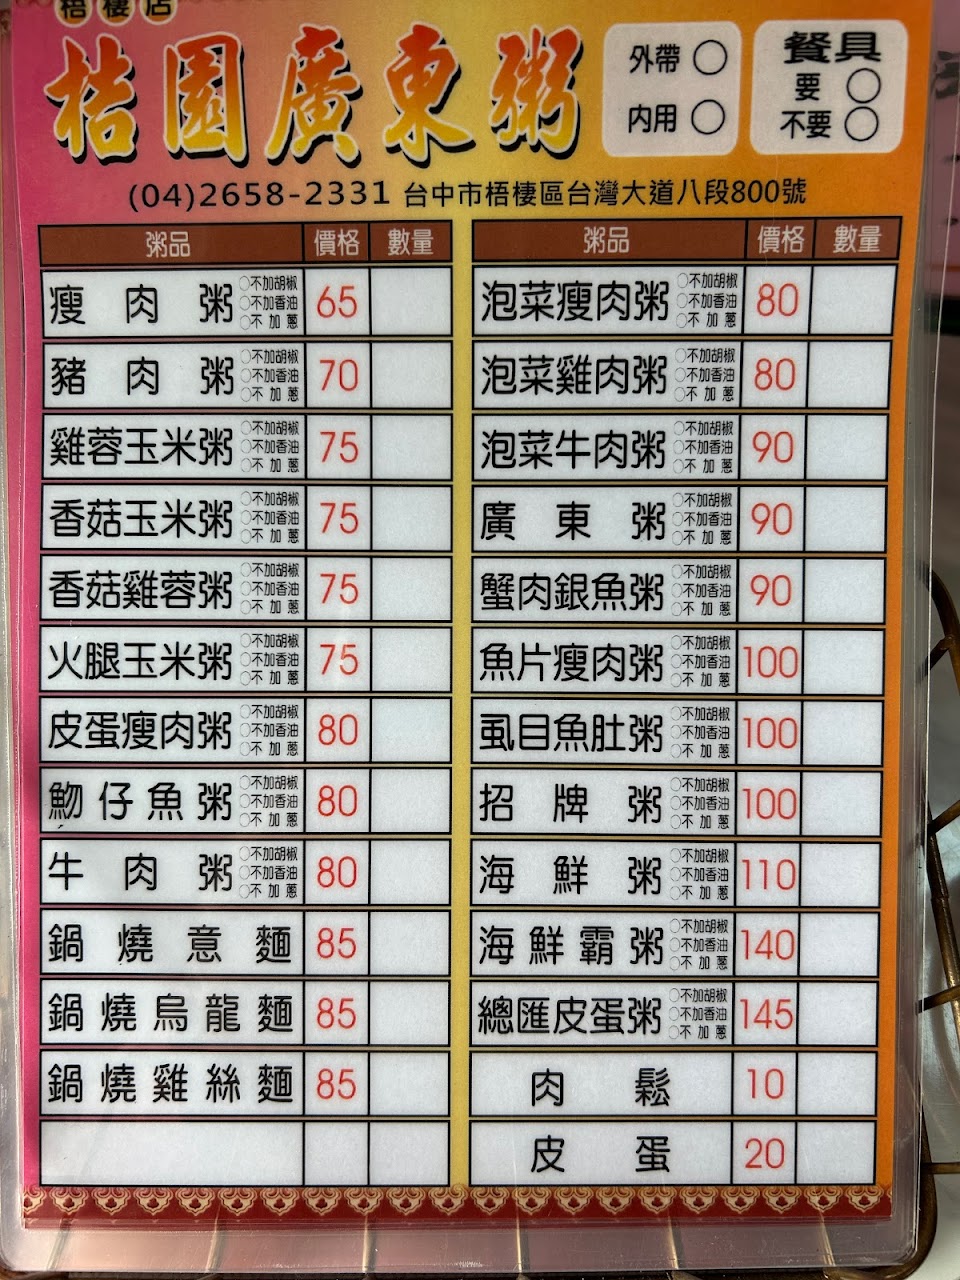 梧棲店
桔園廣東粥
外帶○
內用○
餐具
要○
不要○
(04)2658-2331 台中市梧棲區台灣大道八段800號
粥品 價格 數量
瘦肉粥 ○不加胡椒 ○不加香油 ○不加蔥 65
豬肉粥 ○不加胡椒 ○不加香油 ○不加蔥 70
雞蓉玉米粥 ○不加胡椒 ○不加香油 ○不加蔥 75
香菇玉米粥 ○不加胡椒 ○不加香油 ○不加蔥 75
香菇雞蓉粥 ○不加胡椒 ○不加香油 ○不加蔥 75
火腿玉米粥 ○不加胡椒 ○不加香油 ○不加蔥 75
皮蛋瘦肉粥 ○不加胡椒 ○不加香油 ○不加蔥 80
魩仔魚粥 ○不加胡椒 ○不加香油 ○不加蔥 80
牛肉粥 ○不加胡椒 ○不加香油 ○不加蔥 80
鍋燒意麵 85
鍋燒烏龍麵 85
鍋燒雞絲麵 85
粥品 價格 數量
泡菜瘦肉粥 ○不加胡椒 ○不加香油 ○不加蔥 80
泡菜雞肉粥 ○不加胡椒 ○不加香油 ○不加蔥 80
泡菜牛肉粥 ○不加胡椒 ○不加香油 ○不加蔥 90
廣東粥 ○不加胡椒 ○不加香油 ○不加蔥 90
蟹肉銀魚粥 ○不加胡椒 ○不加香油 ○不加蔥 90
魚片瘦肉粥 ○不加胡椒 ○不加香油 ○不加蔥 100
虱目魚肚粥 ○不加胡椒 ○不加香油 ○不加蔥 100
招牌粥 ○不加胡椒 ○不加香油 ○不加蔥 100
海鮮粥 ○不加胡椒 ○不加香油 ○不加蔥 110
海鮮霸粥 ○不加胡椒 ○不加香油 ○不加蔥 140
總匯皮蛋粥 ○不加胡椒 ○不加香油 ○不加蔥 145
肉鬆 10
皮蛋 20